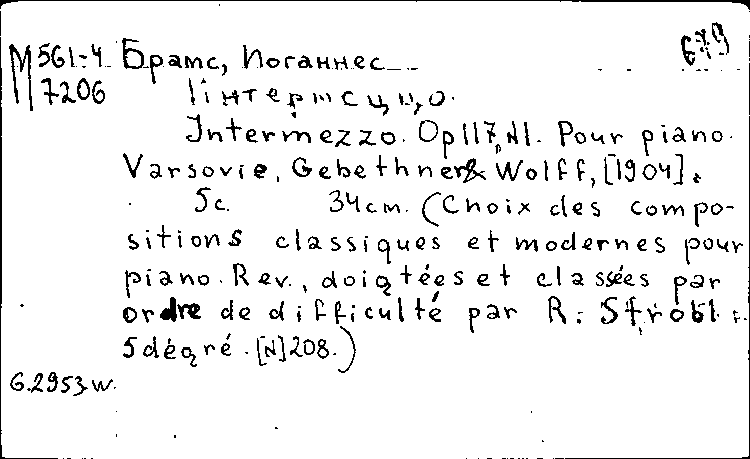 679
М 561-4 Брамс, Иоганнес
7206
Intermezzo. Op 117, N1. Pour piano.
Varsovie, Gebethner & Wolff, [1904].
5c. 34cm. (Choix des compo-
sitions classiques et modernes pour
piano. Rev., doigtées et classées par
ordre de difficulté par R. Strobl.
5 dégré. [N] 208.)
G.2953 W.